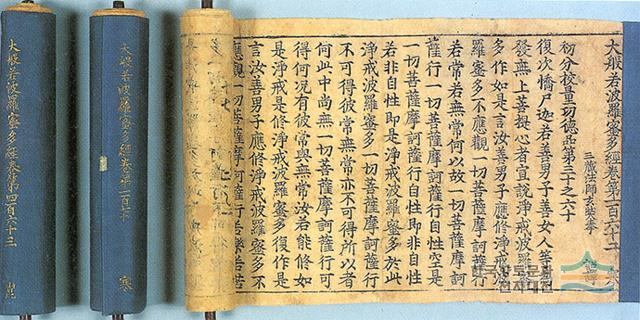 大般若波羅蜜多經卷第一百六十二
三藏法師玄奘奉
初分校量功德品第三十之六十
復次憍尸迦若善男子善女人等爲
發無上菩提心者宣說淨戒波羅蜜
多作如是言汝善男子應修淨戒波
羅蜜多不應觀一切菩薩摩訶薩行
若常若無常何以故一切菩薩摩訶
薩行一切菩薩摩訶薩行自性空是
一切菩薩摩訶薩行自性即非自性
若非自性即是淨戒波羅蜜多於此
淨戒波羅蜜多一切菩薩摩訶薩行
不可得彼常無常亦不可得所以者
何此中尚無一切菩薩摩訶薩行可
得何況有彼常與無常汝若能修如
是淨戒是修淨戒波羅蜜多復作是
言汝善男子應修淨戒波羅蜜多不
應觀一切菩薩摩訶薩行若樂若苦
大般若波羅蜜多經卷第二百十
寒
大般若波羅蜜多經卷第四百六十三
崑